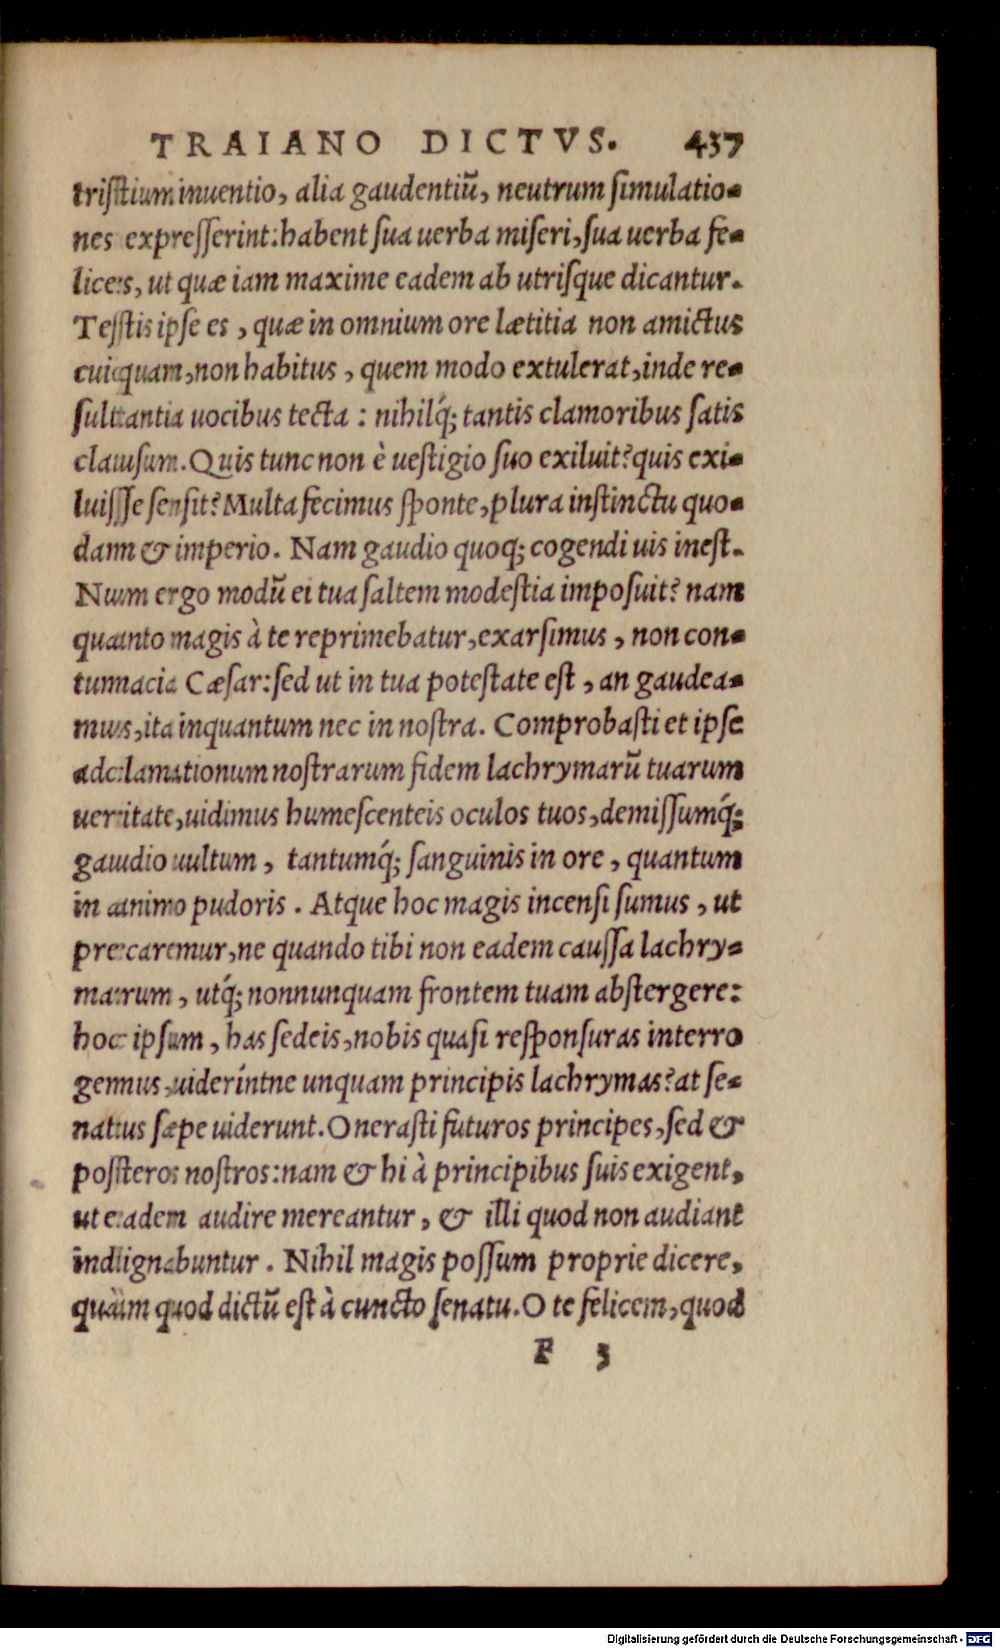 TRAIANO DICTVS. 437
tristium inuentio, alia gaudentiũ, neutrum simulatio-
nes expresserint: habent sua uerba miseri, sua uerba fe-
lices, ut quæ iam maxime eadem ab utrisque dicantur.
Testis ipse es, quæ in omnium ore lætitia non amictus
cuiquam, non habitus, quem modo extulerat, inde re-
sultantia uocibus tecta: nihilq́; tantis clamoribus satis
clausum. Quis tunc non è uestigio suo exiluit? quis exi-
luisse sensit? Multa fecimus sponte, plura instinctu quo-
dam & imperio. Nam gaudio quoq; cogendi uis inest.
Num ergo modũ ei tua saltem modestia imposuit? nam
quanto magis à te reprimebatur, exarsimus, non con-
tumacia Cæsar: sed ut in tua potestate est, an gaudea-
mus, ita inquantum nec in nostra. Comprobasti et ipse
adclamationum nostrarum fidem lachrymarũ tuarum
ueritate, uidimus humescenteis oculos tuos, demissumq́;
gaudio uultum, tantumq́; sanguinis in ore, quantum
in animo pudoris. Atque hoc magis incensi sumus, ut
precaremur, ne quando tibi non eadem caussa lachry-
marum, utq́; nonnunquam frontem tuam abstergere:
hoc ipsum, has sedeis, nobis quasi responsuras interro
gemus, uideríntne unquam principis lachrymas? at se-
natus sæpe uiderunt. Onerasti futuros principes, sed &
posteros nostros: nam & hi à principibus suis exigent,
ut eadem audire mereantur, & illi quod non audiant
indignabuntur. Nihil magis possum proprie dicere,
quàm quod dictũ est à cuncto senatu. O te felicem, quod
F 3
Digitalisierung gefördert durch die Deutsche Forschungsgemeinschaft - DFG